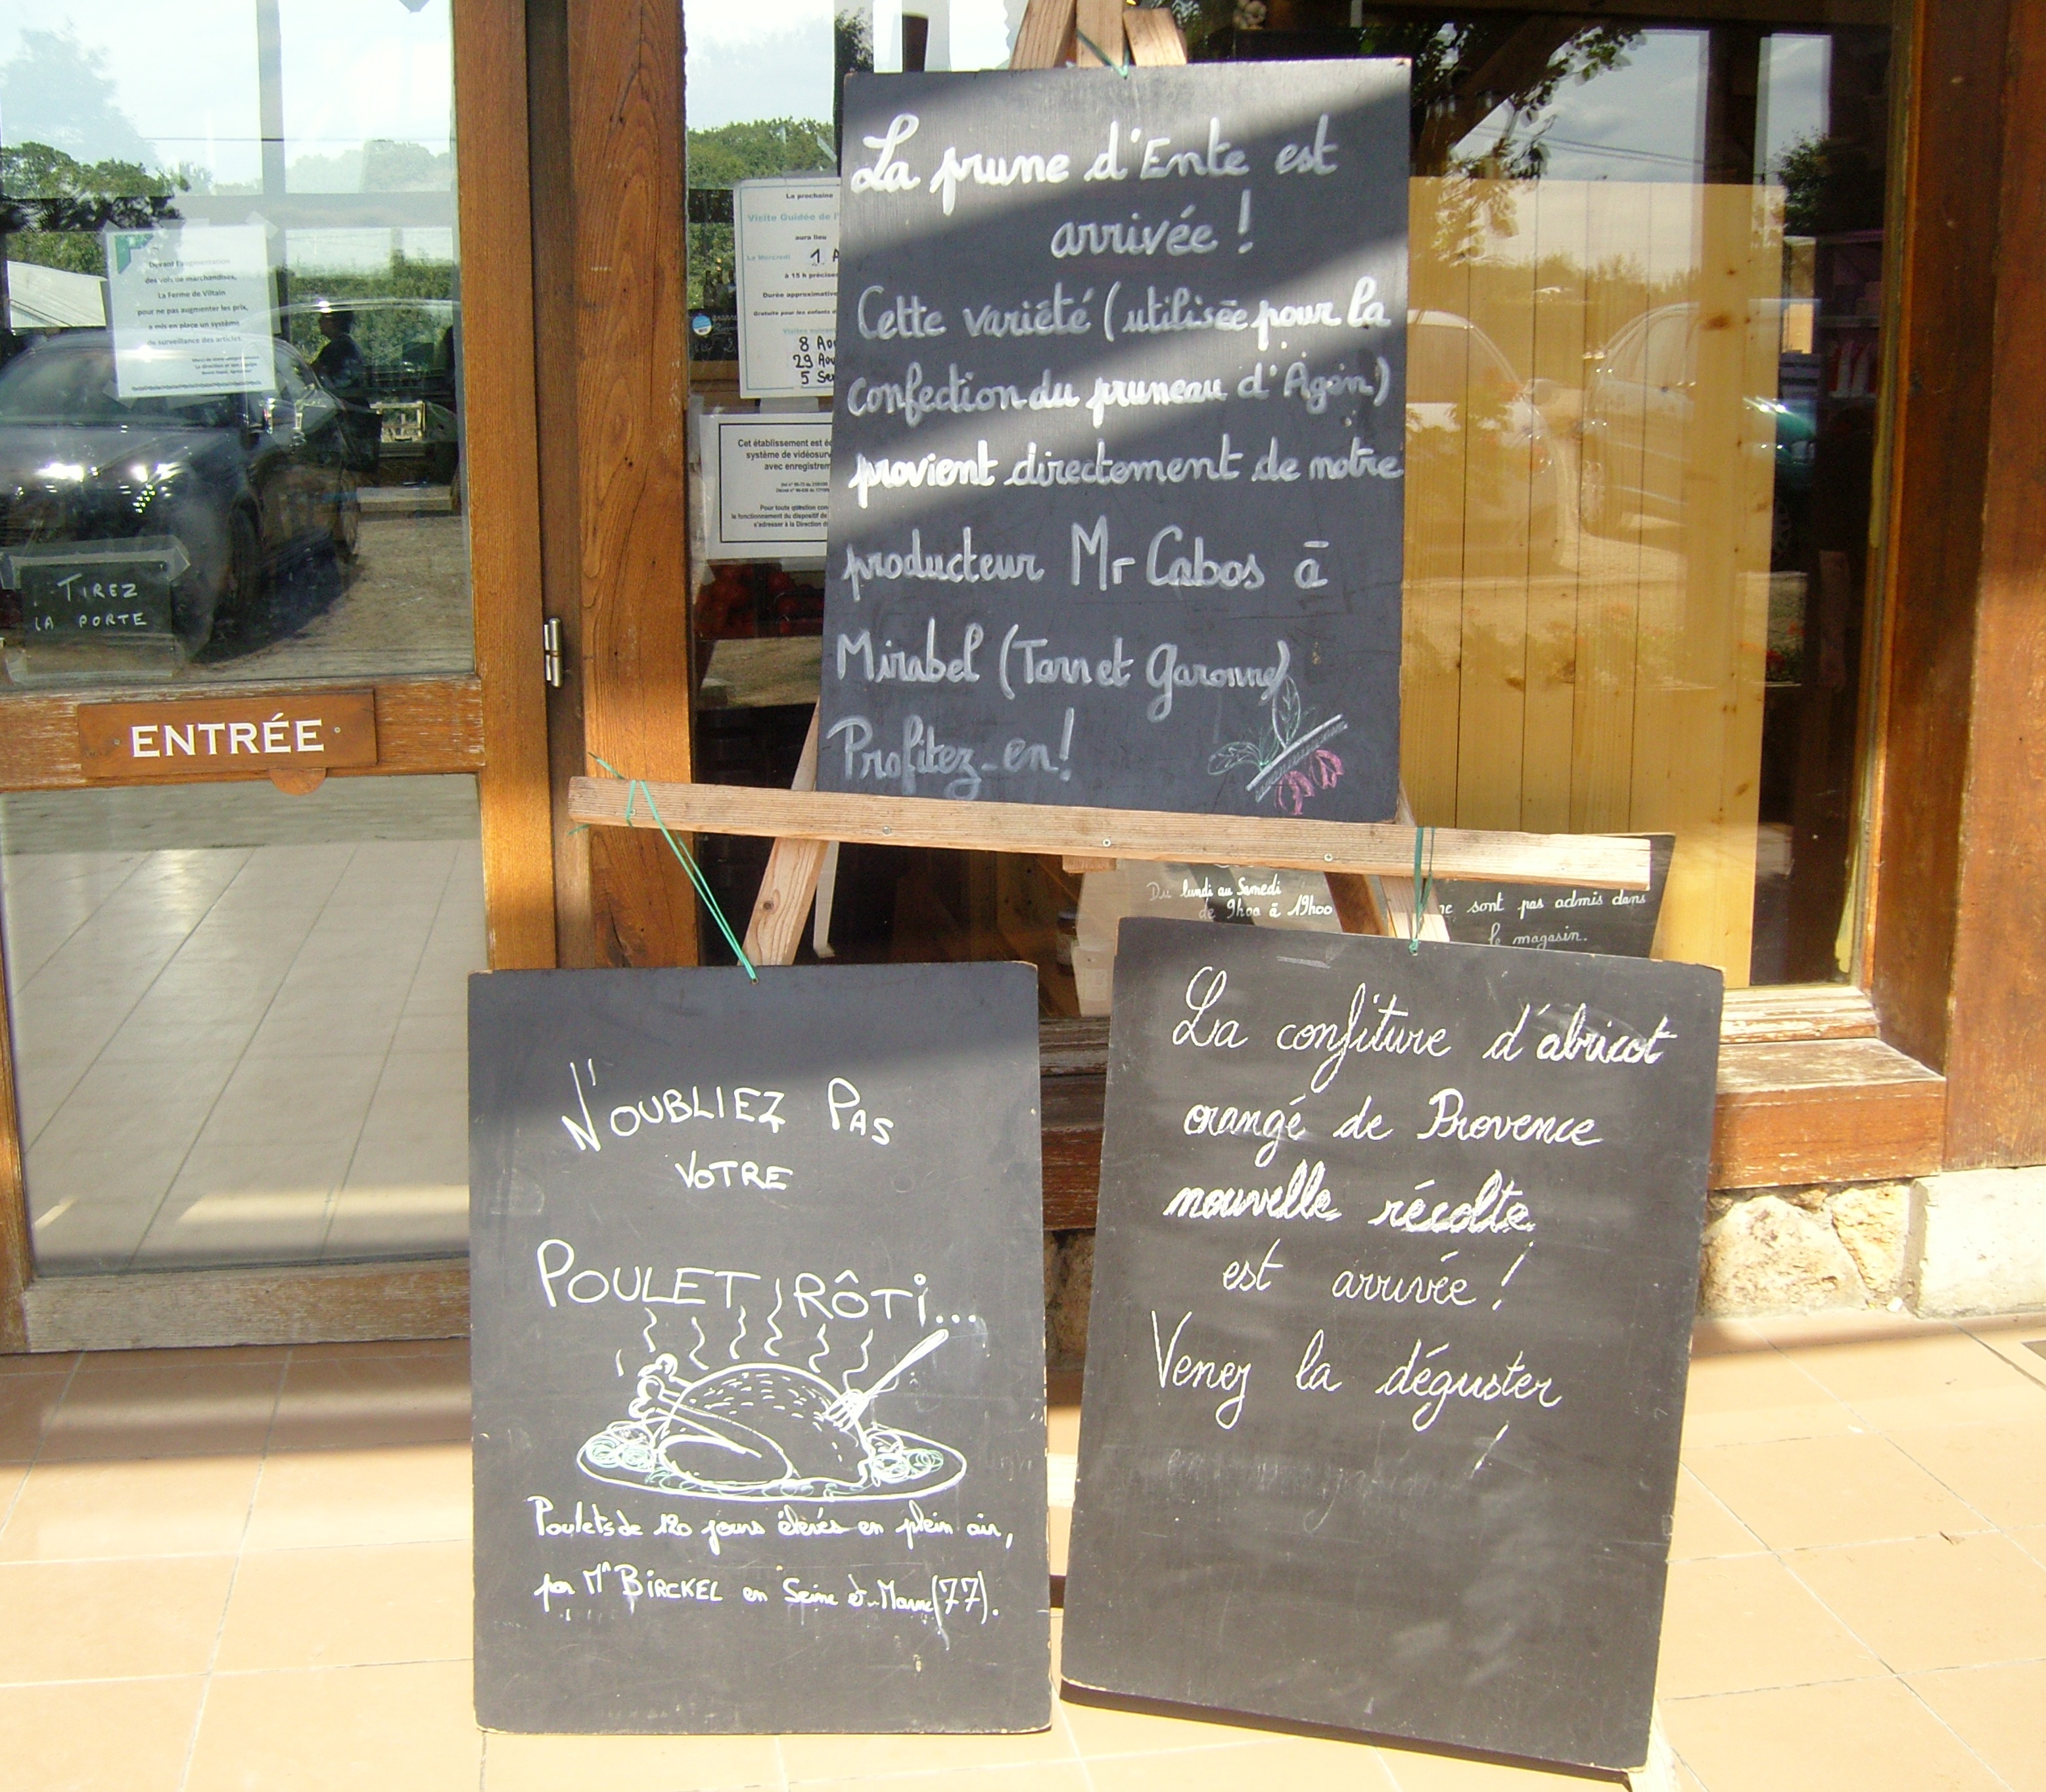 La prune d'Ente est
arrivée !
Cette variété (utilisée pour la
confection du pruneau d'Agen)
provient directement de notre
producteur Mr Cabos à
Mirabel (Tarn et Garonne)
Profitez-en !
N'OUBLIEZ PAS
VOTRE
POULET RÔTI...
Poulets de 120 jours élevés en plein air,
par Mr BIRCKEL en Seine et Marne (77).
La confiture d'abricot
orangé de Provence
nouvelle récolte
est arrivée !
Venez la déguster
!
ENTRÉE
TIREZ
LA PORTE
Devant l'augmentation
des vols de marchandises,
La Ferme de Viltain
pour ne pas augmenter les prix,
a mis en place un système
de surveillance des articles
La prochaine
Visite Guidée de l'
aura lieu
Le Mercredi 1 A
à 15 h précises
Durée approximative
Gratuite pour les enfants d
8 Ao
29 Aou
5 Se
Cet établissement est éq
système de vidéosurv
avec enregistrem
Pour toute question con
le fonctionnement du dispositif de
s'adresser à la Direction d
Du lundi au Samedi
de 9h00 à 19h00
ne sont pas admis dans
le magasin.